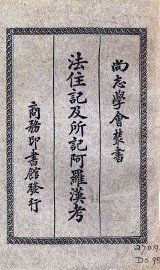 尚志學會叢書
法住記及所記阿羅漢考
商務印書館發行
2709